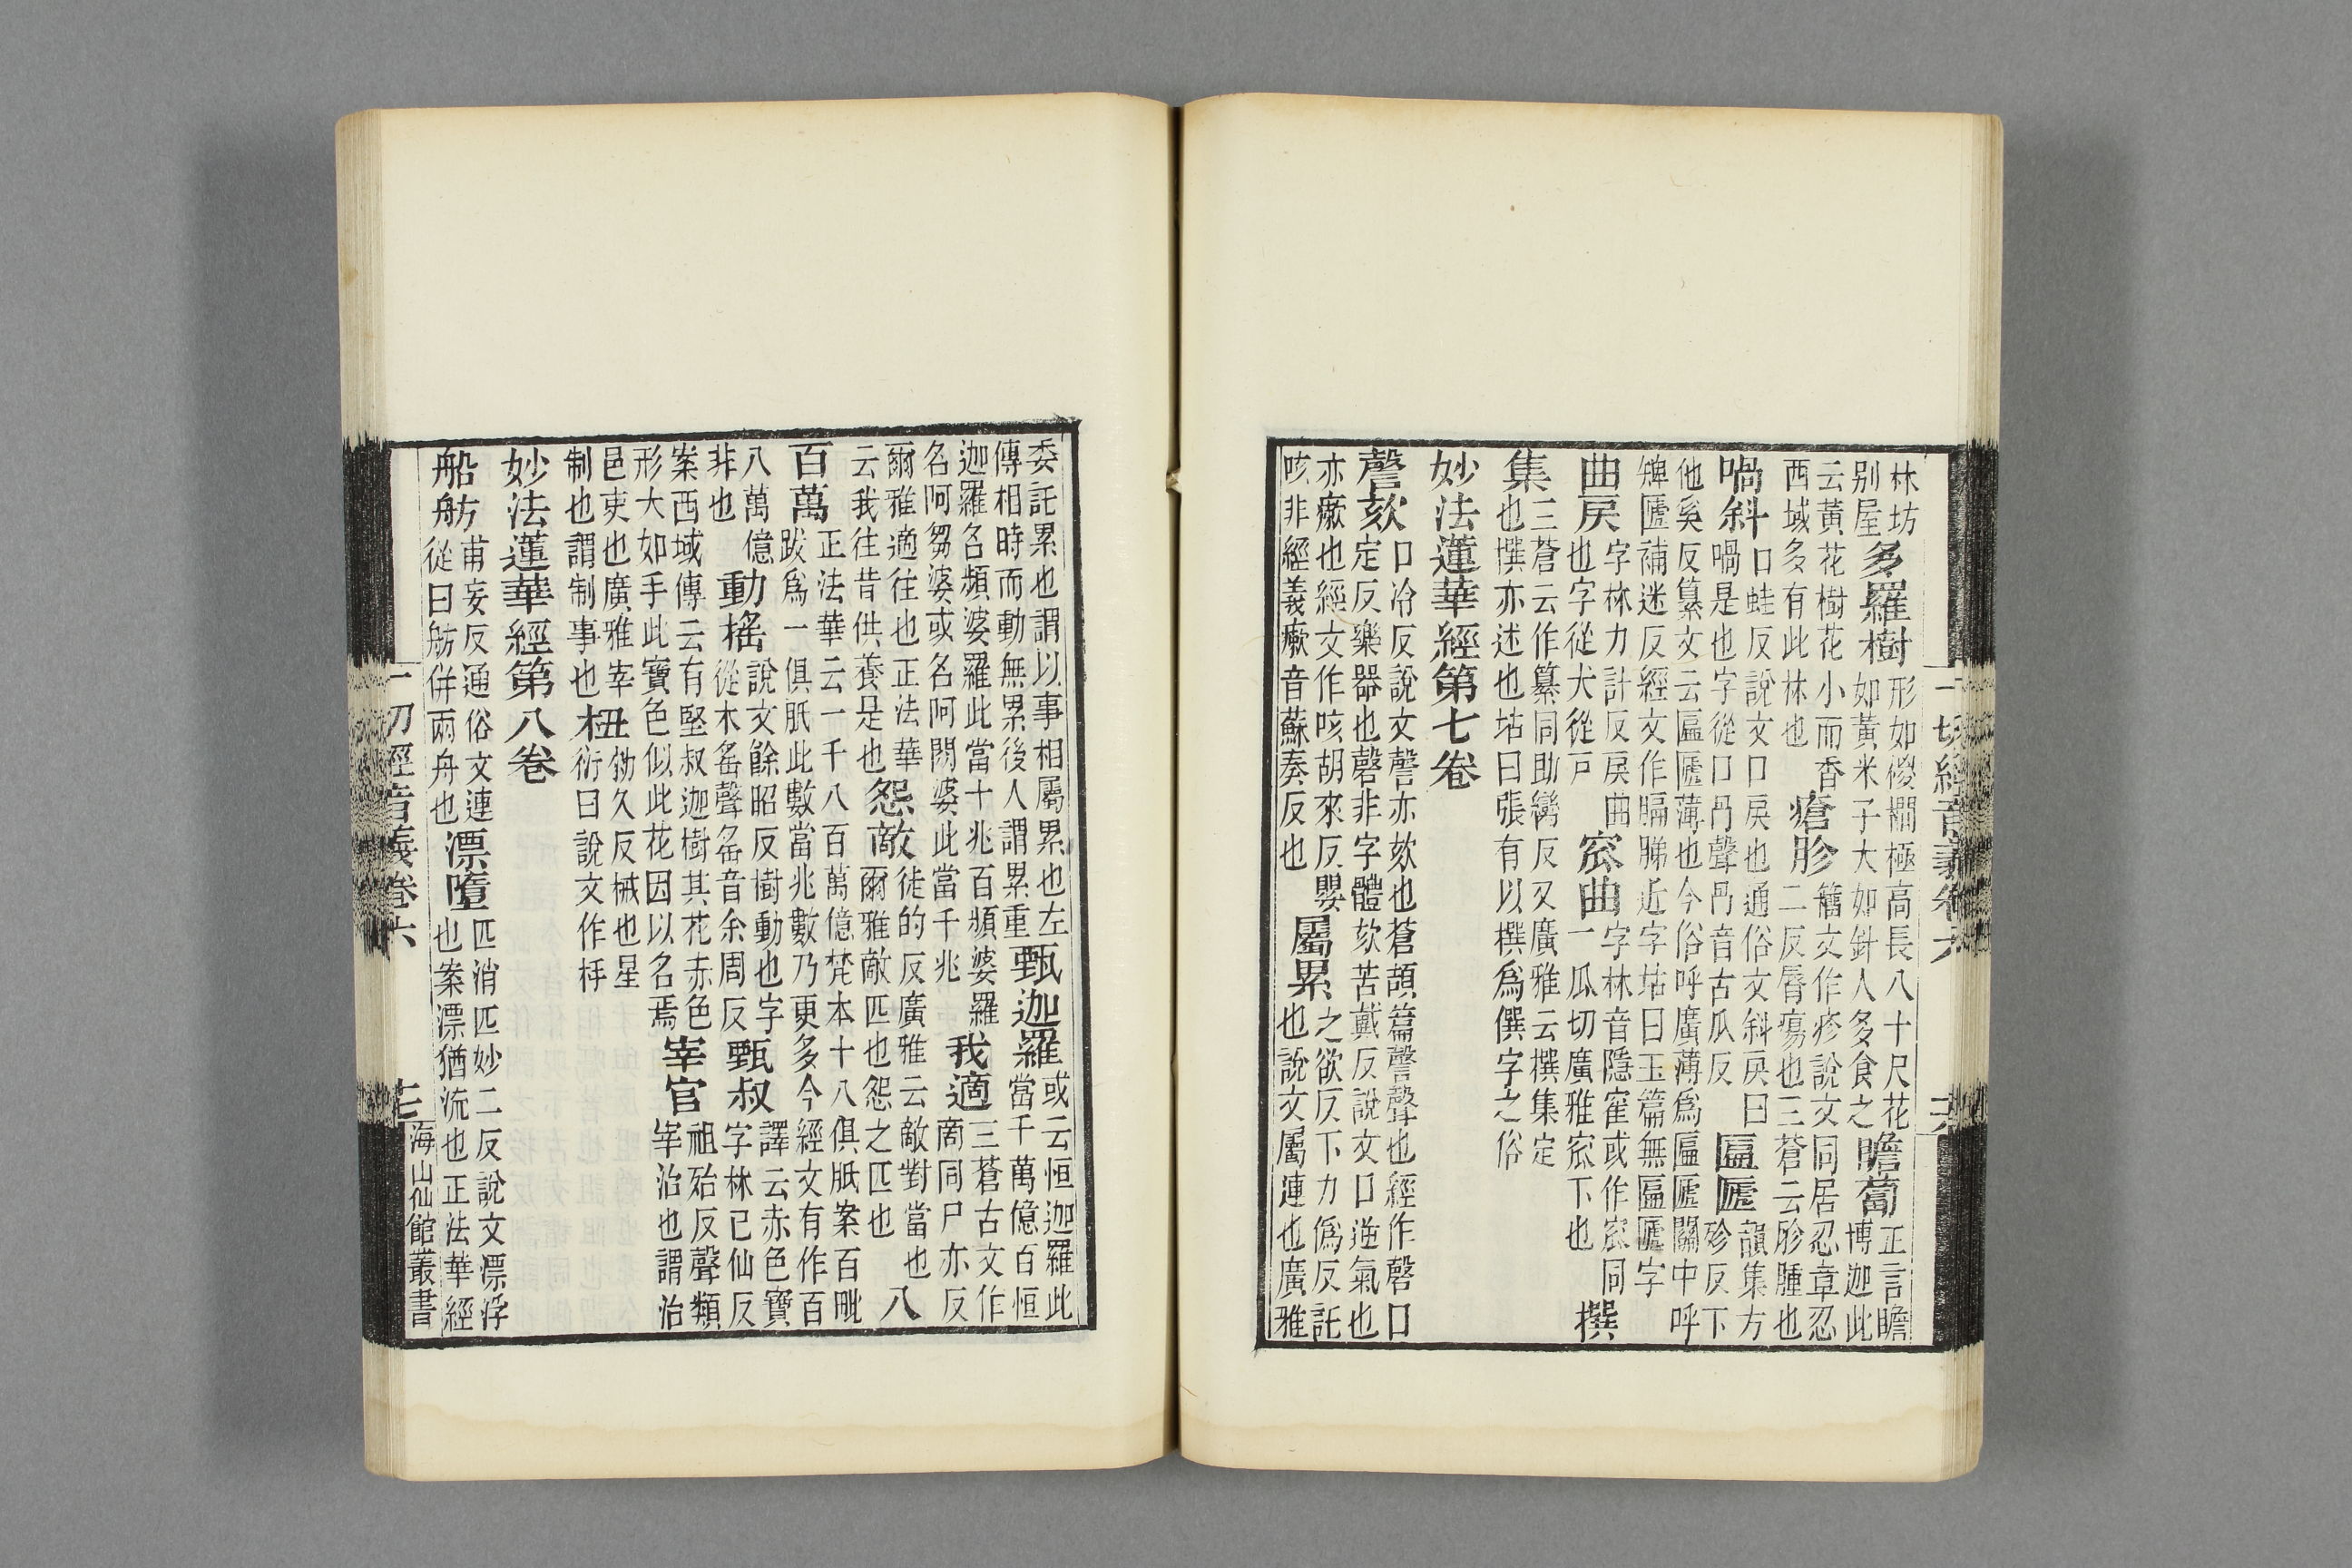 一切經音義卷六
林坊别屋多羅樹形如椶櫚極高長八十尺花如黃米子大如針人多食之瞻蔔正言瞻博迦此
云黃花樹花小而香西域多有此林也瘡胗籒文作疹說文同居忍章忍二反脣瘍也三蒼云胗腫也
喎斜口蛙反說文口戾也通俗文斜戾曰喎是也字從口咼聲咼音古瓜反匾㔸韻集方殄反下
他奚反纂文云匾㔸薄也今俗呼廣薄爲匾㔸關中呼㔸補迷反經文作近字坫曰玉篇無匾㔸字
曲戾字林力計反戾曲也字從犬從戶窊曲字林音隱或作窊同一瓜切廣雅窊下也撰
集三蒼云作篹同助臠反又廣雅云撰集定也撰亦述也坫曰張有以撰爲僎字之俗
妙法蓮華經第七卷
謦欬口冷反說文謦亦欬也蒼頡篇謦聲也經作磬口定反樂器也磬非字體欬苦戴反說文口逆氣也
亦瘶也經文作咳胡來反嬰咳非經義瘶音蘇奏反也屬累之欲反下力僞反託也說文屬連也廣雅
委託累也謂以事相屬累也左傳相時而動無累後人謂累重甄迦羅或云恒迦羅此當千萬億百恒
迦羅名頻婆羅此當十兆百頻婆羅名阿芻婆或名阿閦婆此當千兆我適三蒼古文作啇同尸亦反
爾雅適往也正法華云我往昔供養是也怨敵徒的反廣雅云敵對當也爾雅敵匹也怨之匹也八
百萬正法華云一千八百萬億梵本十八俱胝案百毗跋爲一俱胝此數當兆數乃更多今經文有作百
八萬億非也動搖說文餘昭反樹動也字從木䍃聲䍃音余周反甄叔譯云赤色寶字林已仙反
案西域傳云有堅叔迦樹其花赤色形大如手此寶色似此花因以名焉宰官祖殆反聲類宰治也謂治
邑吏也廣雅宰制也謂制制事也杻勑久反械也星衍曰說文作杽
妙法蓮華經第八卷
船舫甫妄反通俗文連從曰舫併兩舟也漂墮匹消匹妙二反說文漂浮也案漂猶流也正法華經
一切經音義卷六
海山仙館叢書